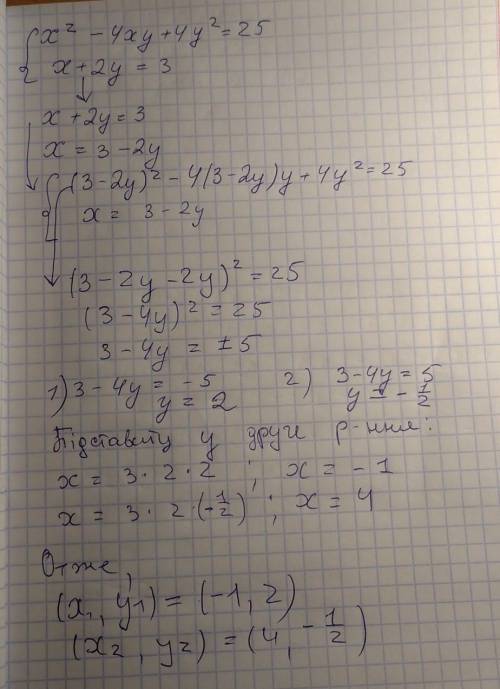 x² - 4xy + 4y² = 25
x + 2y = 3
x + 2y = 3
x = 3 - 2y
(3 - 2y)² - 4(3 - 2y)y + 4y² = 25
x = 3 - 2y
(3 - 2y - 2y)² = 25
(3 - 4y)² = 25
3 - 4y = ±5
1) 3 - 4y = -5 2) 3 - 4y = 5
y = 2 y = -1/2
Підставити у друге р-ння:
x = 3 · 2 · 2 ; x = -1
x = 3 · 2 · (-1/2) ; x = 4
Отже,
(x₁, y₁) = (-1, 2)
(x₂, y₂) = (4, -1/2)